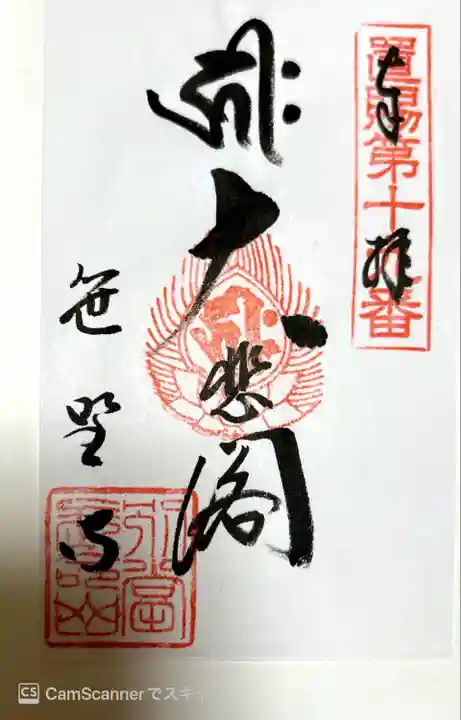 置賜第十九番
奉拝
大悲閣
笹野寺
CamScannerでスキ